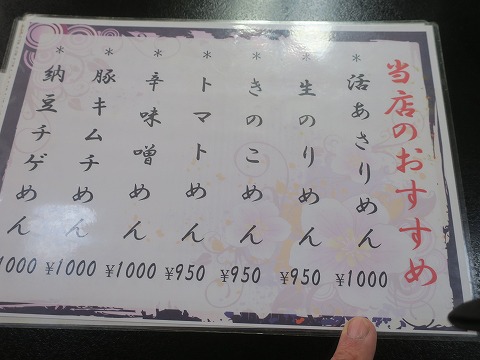 当店のおすすめ
*活あさりめん ¥1000
*生のりめん ¥950
*きのこめん ¥950
*トマトめん ¥950
*辛味噌めん ¥1000
*豚キムチめん ¥1000
*納豆チゲめん 1000